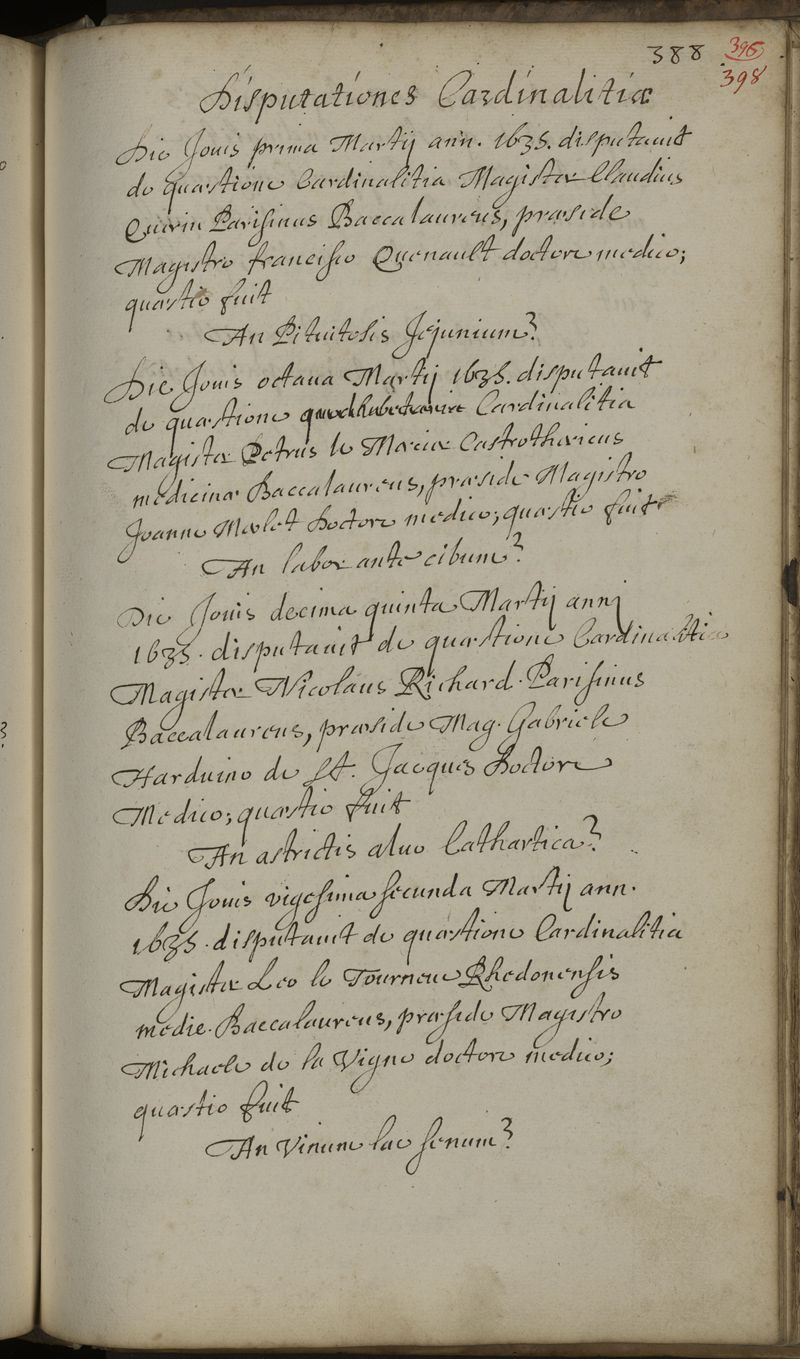 388 396
398
Disputationes Cardinalitiæ
Die Jouis prima Martij ann. 1635. disputauit
de quæstione Cardinalitia Magister Claudius
Parisinus Baccalaureus, præside
Magistro francisco Quenault doctore medico;
quæstio fuit
An Pituitosis Jejunium?
Die Jouis octaua Martij 1635. disputauit
de quæstione Cardinalitia
Magister Petrus le Mercier Castrothericus
medicinæ Baccalaureus, præside Magistro
Joanne Merlet Doctore medico; quæstio fuit
An labor ante cibum?
Die Jouis decima quinta Martij annj
1635. disputauit de quæstione Cardinalitia
Magister Nicolaus Richard Parisinus
Baccalaureus, præside Mag. Gabriele
Harduino de St. Jacques Doctore
Medico; quæstio fuit
An astrictis aluo Cathartica?
Die Jouis vigesima secunda Martij ann.
1635. disputauit de quæstione Cardinalitia
Magister Leo le Tourneur Rhedonensis
medic. Baccalaureus, præside Magistro
Michaele de la Vigne doctore medico;
quæstio fuit
An Vinum lac senum?